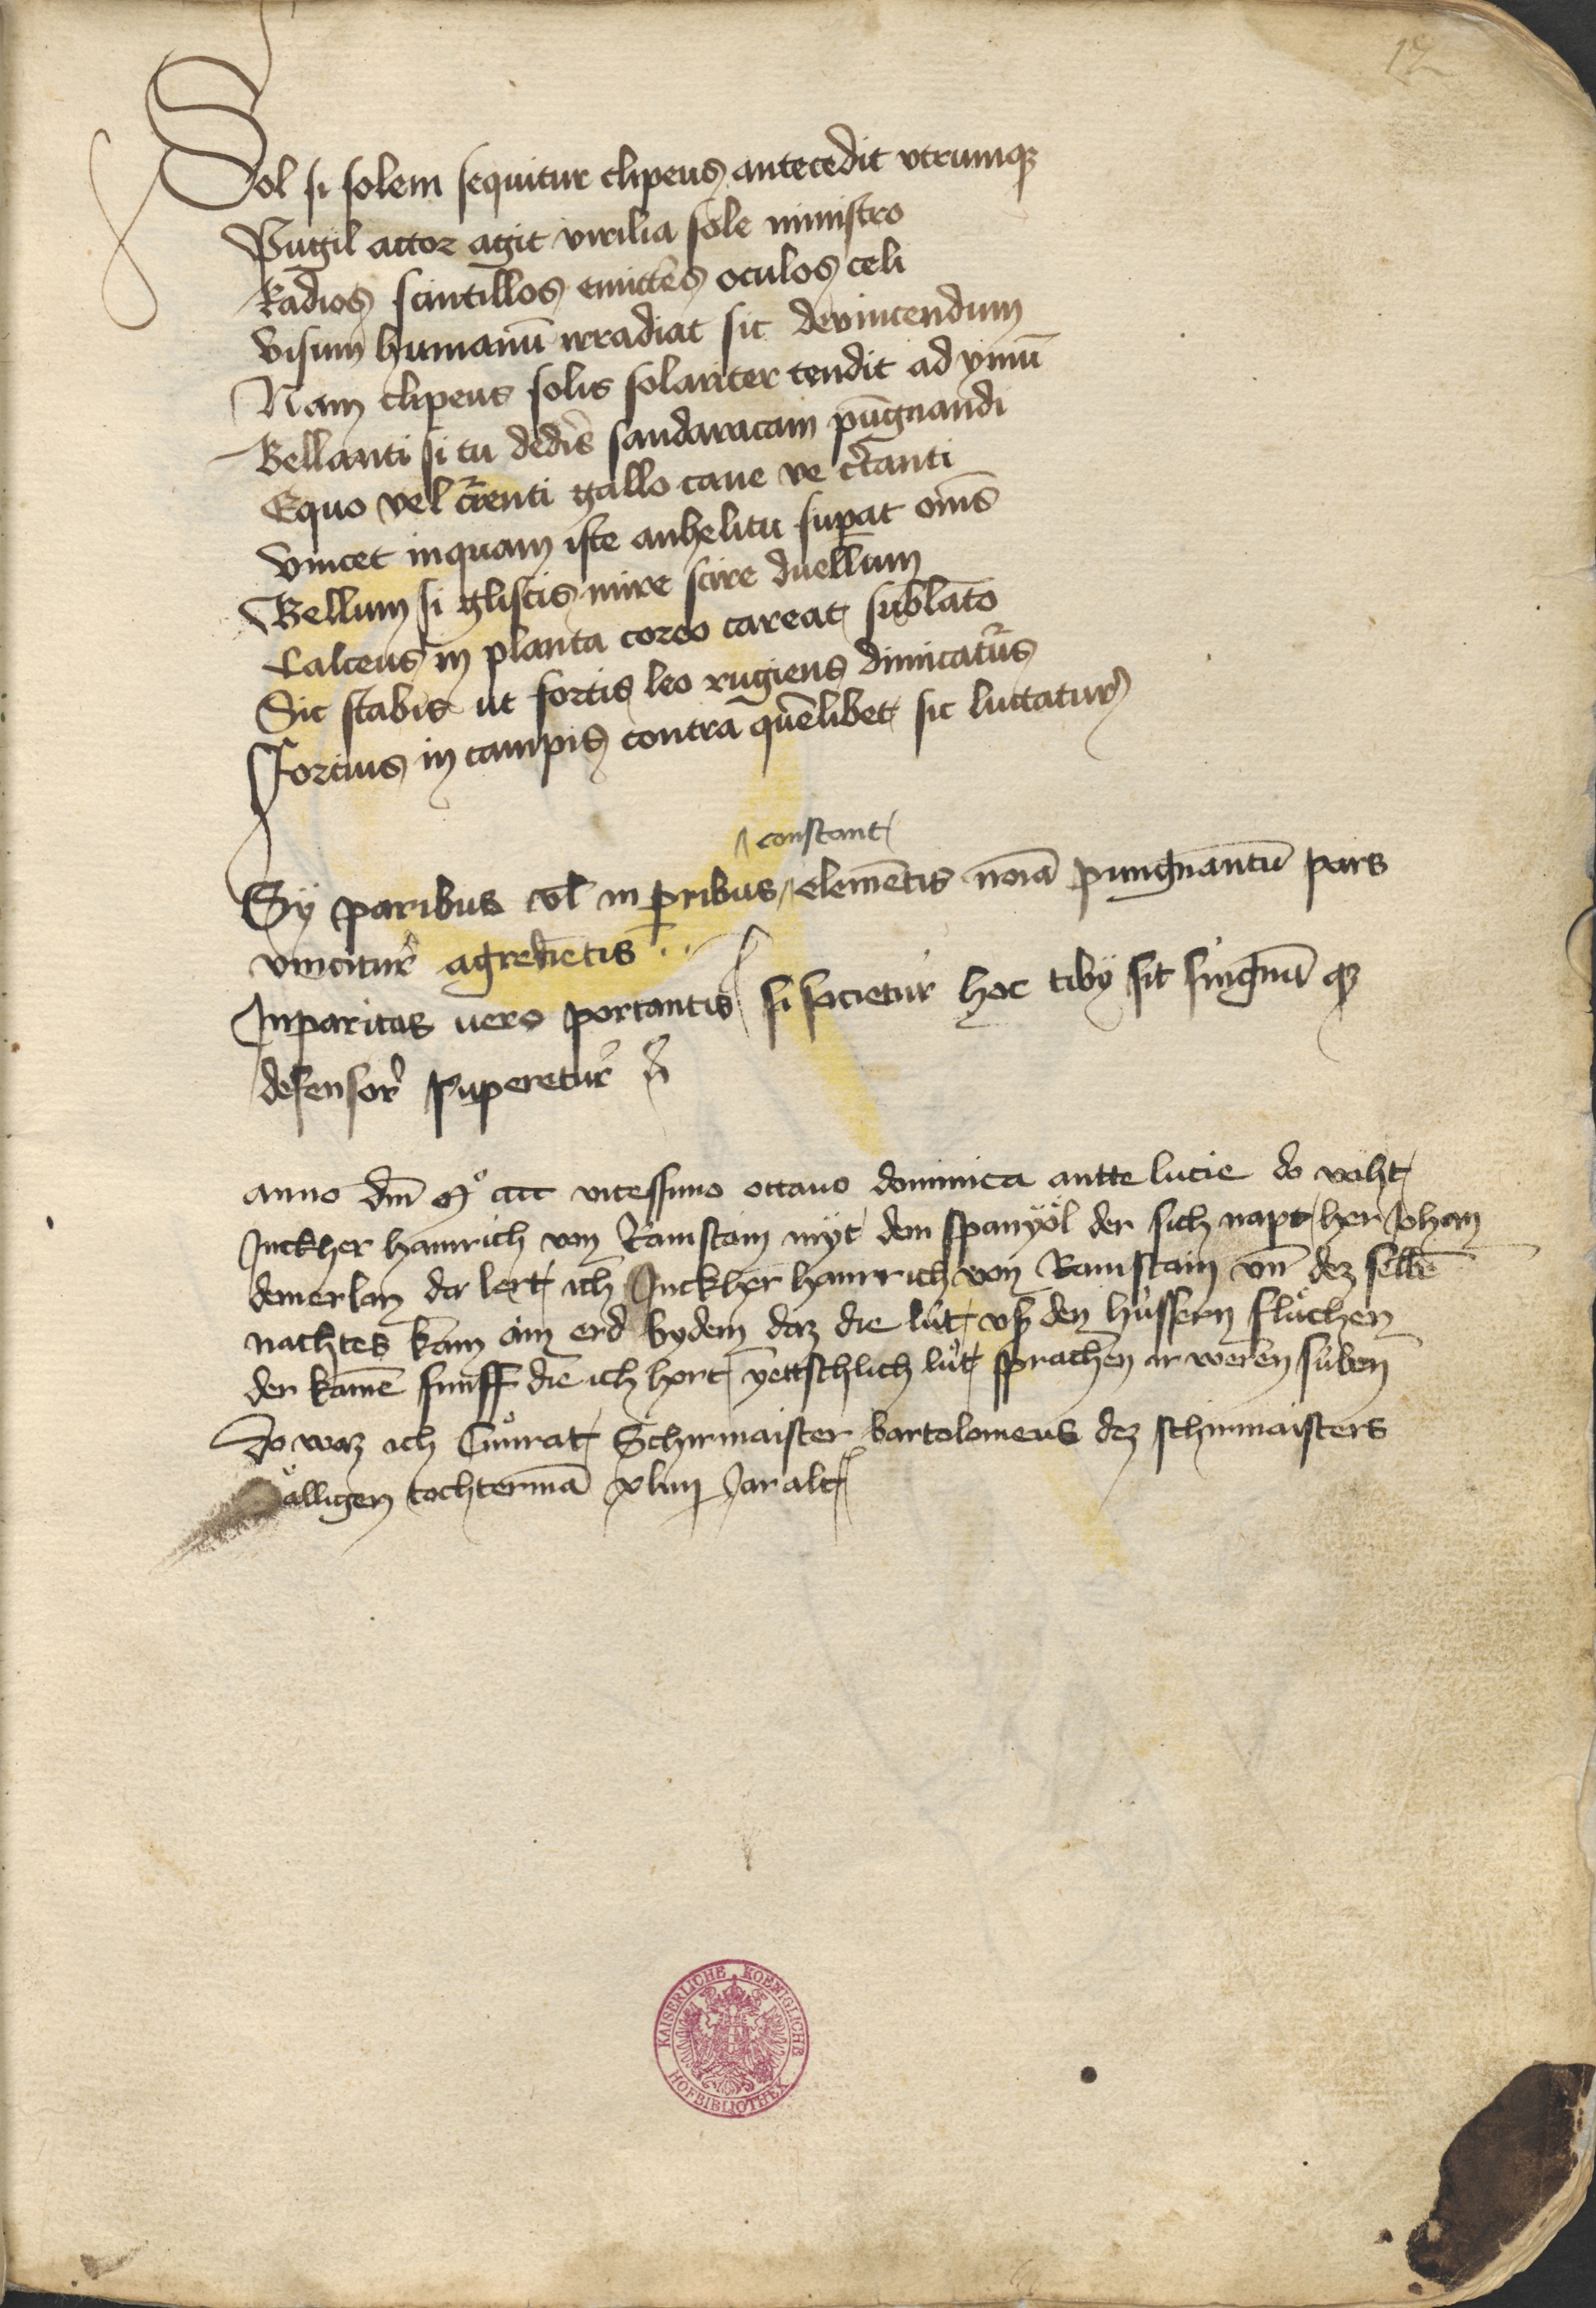 12
Sol si solem sequitur clipeus antecedit vtrumqꝫ
Pugil actor agit virilia sole ministro
Radios scintillos emittēs oculos celi
Visum humanū irradiat sic devincendum
Nam clipeus solis solariter tendit ad ymū
Bellanti si tu dedis sandaracam pūgnandi
Equo vel c̄renti gallo caue ve c̄tanti
Vincet inquam iste anhelitu supat om̄s
Bellum si gliscis mire scire duellum
Calceus in planta coreo careat sublato
Sic stabis ut fortis leo rugiens dimicatus
Forcius in campis contra quēlibet sic luctatur
constant
Sy paribus vl̄ in p̱ribus elemētis noīa pungnantū pars
vincitur agredīetis
Inparitas uero portantis si societur hoc tiby sit singnū qꝫ
defensor superetur
anno dm̄ Mº cccc vicessimo octauo dominica antte lucie do vaht
Juckher hainrich von Ramstain myt dem spanyöl der sich napt her Johan
demerlan da lert ich Juckher hainrrich von Ramstain vn̄ dez selbē
nachtes kam ain erd bydem daz die lút vß den hússern flúchen
der kamē funff die ich hort yettschlich lút sprachen ir weren suben
Do waz ich Cůnrat Schirmaister bartolomeus dez schirmaisters
sälligen tochtermā xliiij Jar alt
KAISERLICHE KOENIGLICHE
HOFBIBLIOTHEK